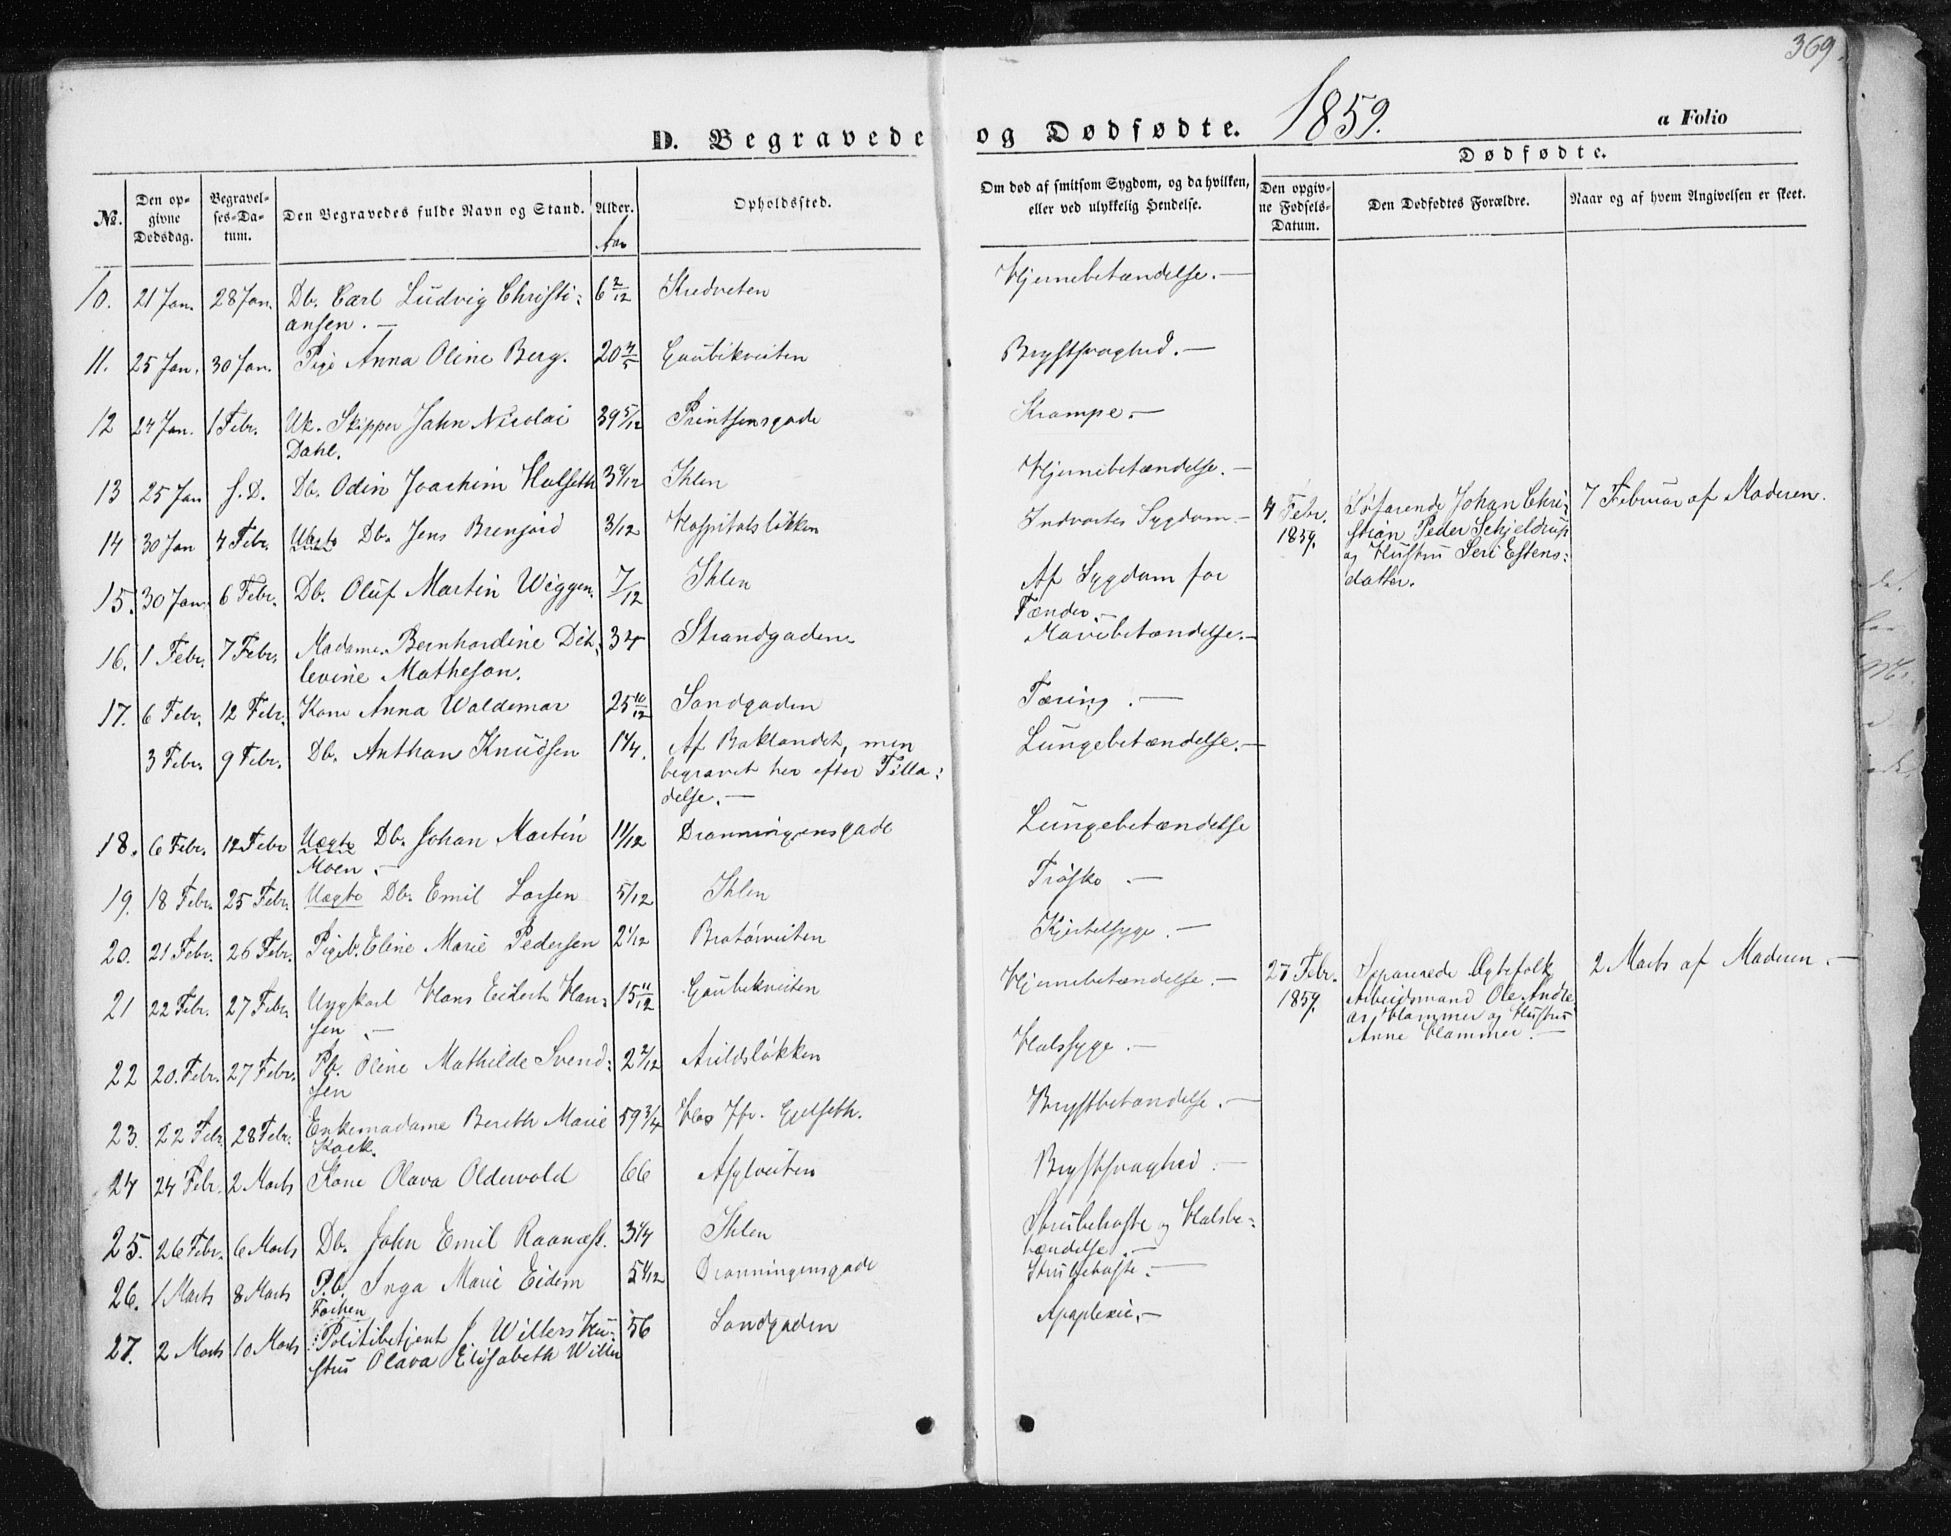 369.
D. Begravede og Dødfødte. 1859. a Folio
Dødfødte.
No.
Den opgivne Dødsdag.
Begravelses-Datum.
Den Begravedes fulde Navn og Stand.
Alder.
Aar
Opholdssted.
Om død af smitsom Sygdom, og da hvilken,
eller ved ulykkelig Hendelse.
Den opgivne Fødsels-Datum.
Den Dødfødtes Forældre.
Naar og af hvem Angivelsen er skeet.
10. 21 Jan. 28 Jan. Db. Carl Ludvig Christi: 6 2/12 Hjernebetændelse. —
ansen. —
11. 25 Jan. 30 Jan. Pige Anna Oline Berg. 20 Gaubikveiten Brystsvaghed. —
12 24 Jan. 1 Febr. Uk. Skipper Jahn Nicolai 39 5/12 Printsensgade Krampe. —
Dahl.
13 25 Jan s. D. Db. Odin Joachim Halseth Ihlen Hjernebetændelse. —
14 30 Jan 4 Febr. Uægte Db. Jens Brenjord 3/12 Hospitalsløkken Indvortes Sygdom. — 4 Febr. Søfarende Johan Chri- 7 Februar af Moderen.
1859. stian Peder Schjeldrup
og Hustru Seri Estens:
datter.
15. 30 Jan. 6 Febr. Db. Oluf Martin Wiggen. 7/12 Ihlen Af Sygdom for
Tænder. —
16. 1 Febr. 7 Febr. Madame Bernhardine Dit- 34 Strandgaden Mavebetændelse. —
levine Matheson.
17. 6 Febr. 12 Febr. Kone Anna Waldemar 25 10/12 Sandgaden Tæring. —
3 Febr. 9 Febr. Db. Anthon Knudsen 1 1/4. Af Baklandet, men Lungebetændelse. —
begravet her efter Tilla:
delse. —
18. 6 Febr. 12 Febr Uægte Db. Johan Martin 11/12 Dronningensgade Lungebetændelse
Moen. —
19. 18 Febr. 25 Febr. Uægte Db. Emil Larsen 5/12 Ihlen Trøske. —
20. 21 Febr. 26 Febr. Pigeb. Eline Marie Pedersen 2 1/12 Bratørveiten Kjertelsyge. —
21 22 Febr. 27 Febr. Ungkarl Hans Eidert Han- 15 11/12 Gaubekveiten Hjernebetændelse. — 27 Febr. Separerede Ægtefolk 2 Marts af Moderen. —
sen. — 1859. Arbeidsmand Ole Andre-
as Hammer og Hustru
Anne Hammer. —
22 20. Febr. 27 Febr. Pb. Oline Mathilde Svend: 2 2/12 Arildsløkken Halssyge. —
sen
23. 22 Febr. 28 Febr. Enkemadame Bereth Marie 59 3/4 Hos Jfr. Gjelseth. Brystbetændelse. —
Kock.
24 24 Febr. 2 Marts Kone Olava Oldervold 66 Asylveiten Brystsvaghed. —
25. 26 Febr. 6 Marts Db. John Emil Raanæss. 3 1/4 Ihlen Strubehoste og Halsbe-
tændelse. —
26. 1 Marts 8 Marts P.b. Inga Marie Eidem 5 Dronningensgade Strubehoste. —
27. 2 Marts 10 Marts Politibetjent J. Willers Hu- 56 Sandgaden Apoplexie. —
stru Olava Elisabeth Willer